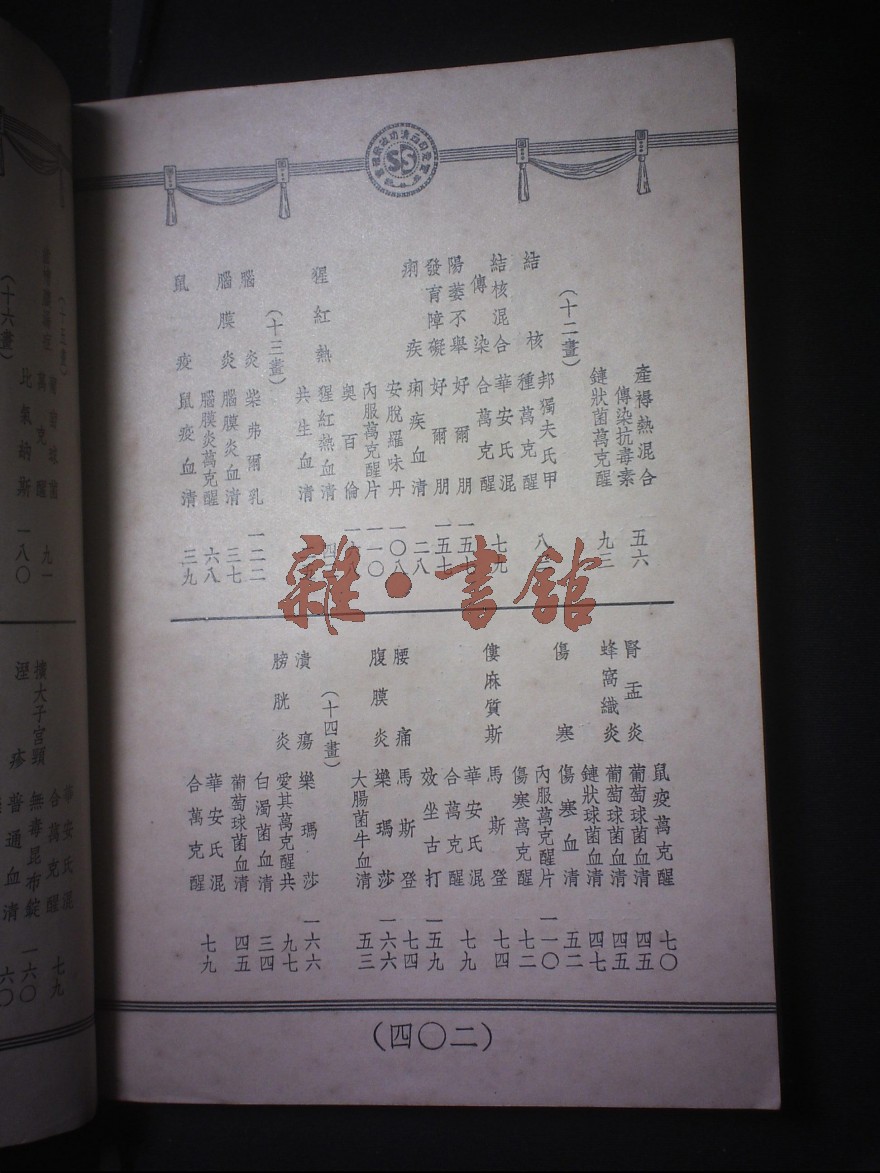 產褥熱混合
傳染抗毒素 五六
鏈狀菌萬克醒 九三
(十二畫)
結核 邦獨夫氏甲
種萬克醒
結核混合 華安氏混
傳染 合萬克醒 七九
陽萎不舉 好爾朋 一五七
發育障礙 好爾朋 一五七
痢疾 痢疾血清 二八
安脫羅味丹 一〇八
內服萬克醒片 一一〇
奧百倫
猩紅熱 猩紅熱血清
共生血清
(十三畫)
腦炎 柴弗爾乳 一二二
腦膜炎 腦膜炎血清 三七
腦膜炎萬克醒 六八
鼠疫 鼠疫血清 三九
鼠疫萬克醒 七〇
腎盂炎 葡萄球菌血清 四五
蜂窩織炎 葡萄球菌血清 四五
鏈狀球菌血清 四七
傷寒 傷寒血清 五二
內服萬克醒片 一一〇
傷寒萬克醒 七二
僂麻質斯 馬斯登 七四
華安氏混
合萬克醒 七九
效坐古打 一五九
腰痛 馬斯登 七四
腹膜炎 樂瑪莎 一六六
大腸菌牛血清 五三
(十四畫)
潰瘍 樂瑪莎 一六六
膀胱炎 愛其萬克醒共 九七
白濁菌血清 三四
葡萄球菌血清 四五
華安氏混
合萬克醒 七九
(四〇二)
比氣納斯 一八〇
(十六畫)
九一
擴大子宮頸 無毒昆布錠 一六〇
溼疹 普通血清 六〇
華安氏混
合萬克醒 七九
雜·書館